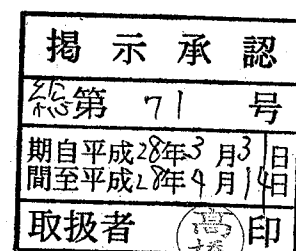 掲示承認
総第 71 号
期間 自平成28年3月31日
至平成28年4月14日
取扱者 高橋 印